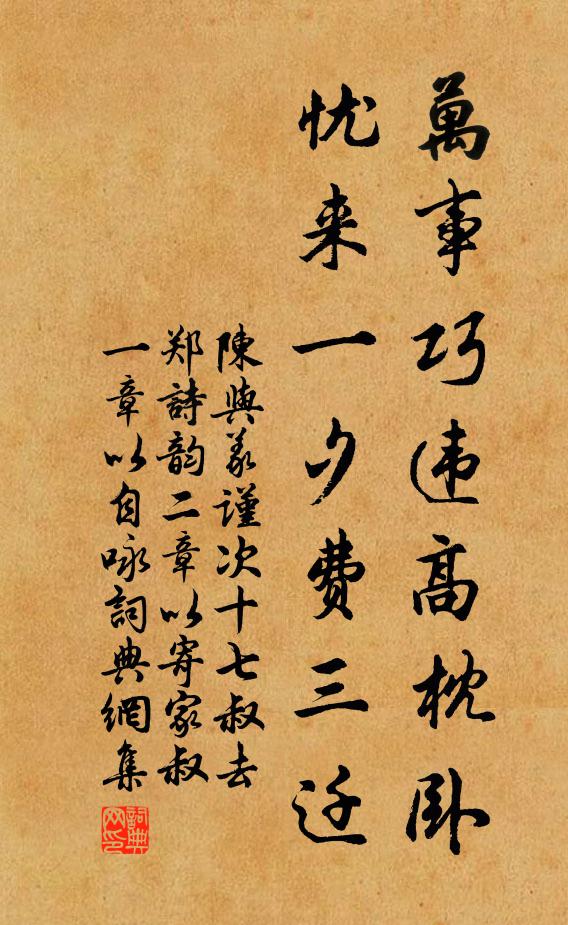 萬事巧违高枕卧
忧来一夕费三迁
陳與義謹次十七叔去
郑詩韵二章以寄家叔
一章以自咏詞典網集
詞典
网印